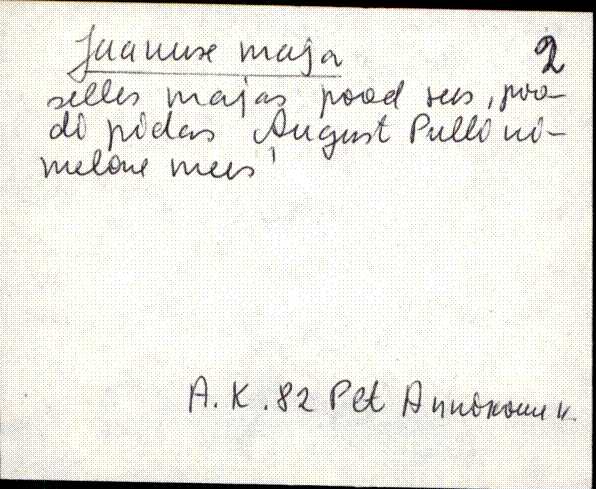 Jaanuse maja 2
selles majas pood sees, poo-
di pidas August Pulli ni-
meline mees
A. K. 82 Pet